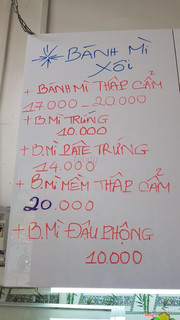 BÁNH MÌ
XÔI
+ BÁNH MÌ THẬP CẨM
17.000 - 20.000
+ B.MÌ TRỨNG
10.000
+ B.MÌ PATÊ TRỨNG
14.000
+ B.MÌ MỀM THẬP CẨM
20.000
+ B.MÌ ĐẬU PHỘNG
10.000